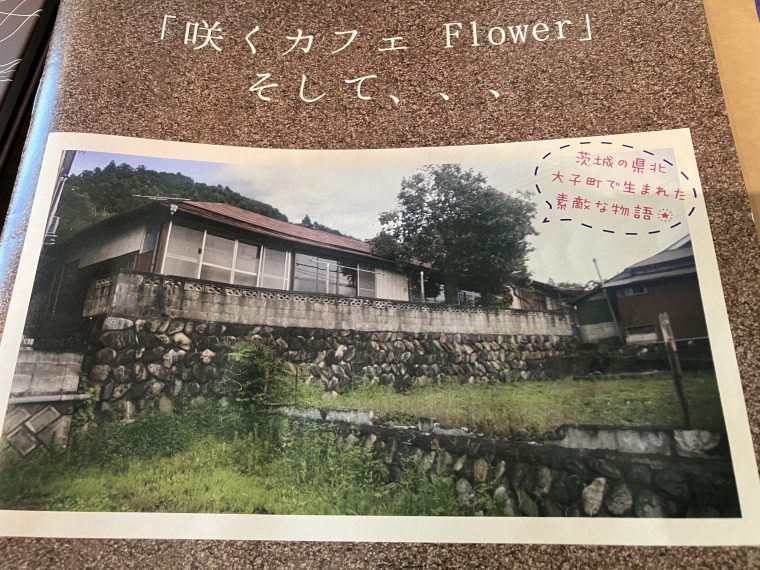 「咲くカフェ Flower」
そして、、、
茨城の県北
大子町で生まれた
素敵な物語